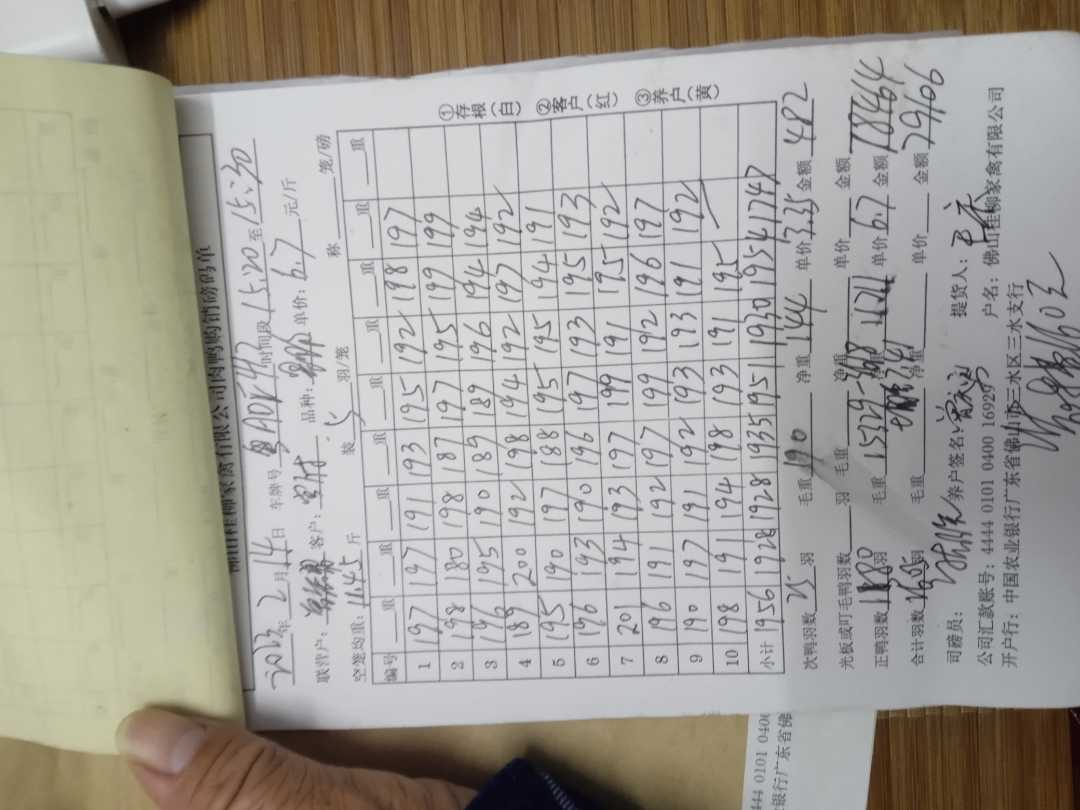 佛山桂柳家禽有限公司肉鸭购销磅码单
2023年2月14日 车牌号 时间段15:20至15:30
联营户: 客户: 品种: 单价:6.7元/斤
空笼均重:11.45斤 装5羽/笼 称 笼/磅
编号 重 重 重 重 重 重 重 重 重
1 197 197 191 193 195 192 198 197
2 198 180 198 187 197 195 199 199
3 196 195 190 189 189 196 194 194
4 189 200 192 198 194 192 197 192
5 195 190 197 188 195 195 194 191
6 196 193 190 196 197 193 195 193
7 201 194 193 197 199 191 195 192
8 196 191 192 197 199 192 196 197
9 190 197 191 192 193 193 191 192
10 198 191 194 198 193 191 195
小计 1956 1928 1928 1935 1951 1930 1954 1747
①存根(白) ②客户(红) ③养户(黄)
次鸭羽数25羽 毛重190 净重144 单价3.35 金额482
光板或叮毛鸭羽数 羽 毛重 净重 单价 金额
正鸭羽数 羽 毛重15329 净重 单价6.7 金额
合计羽数 羽 毛重 净重 单价 金额
司磅员: 养户签名: 提货人:
公司汇款账号:4444 0101 0400 16929 户名:佛山桂柳家禽有限公司
开户行:中国农业银行广东省佛山市三水区三水支行
444 0101 040
银行广东省佛